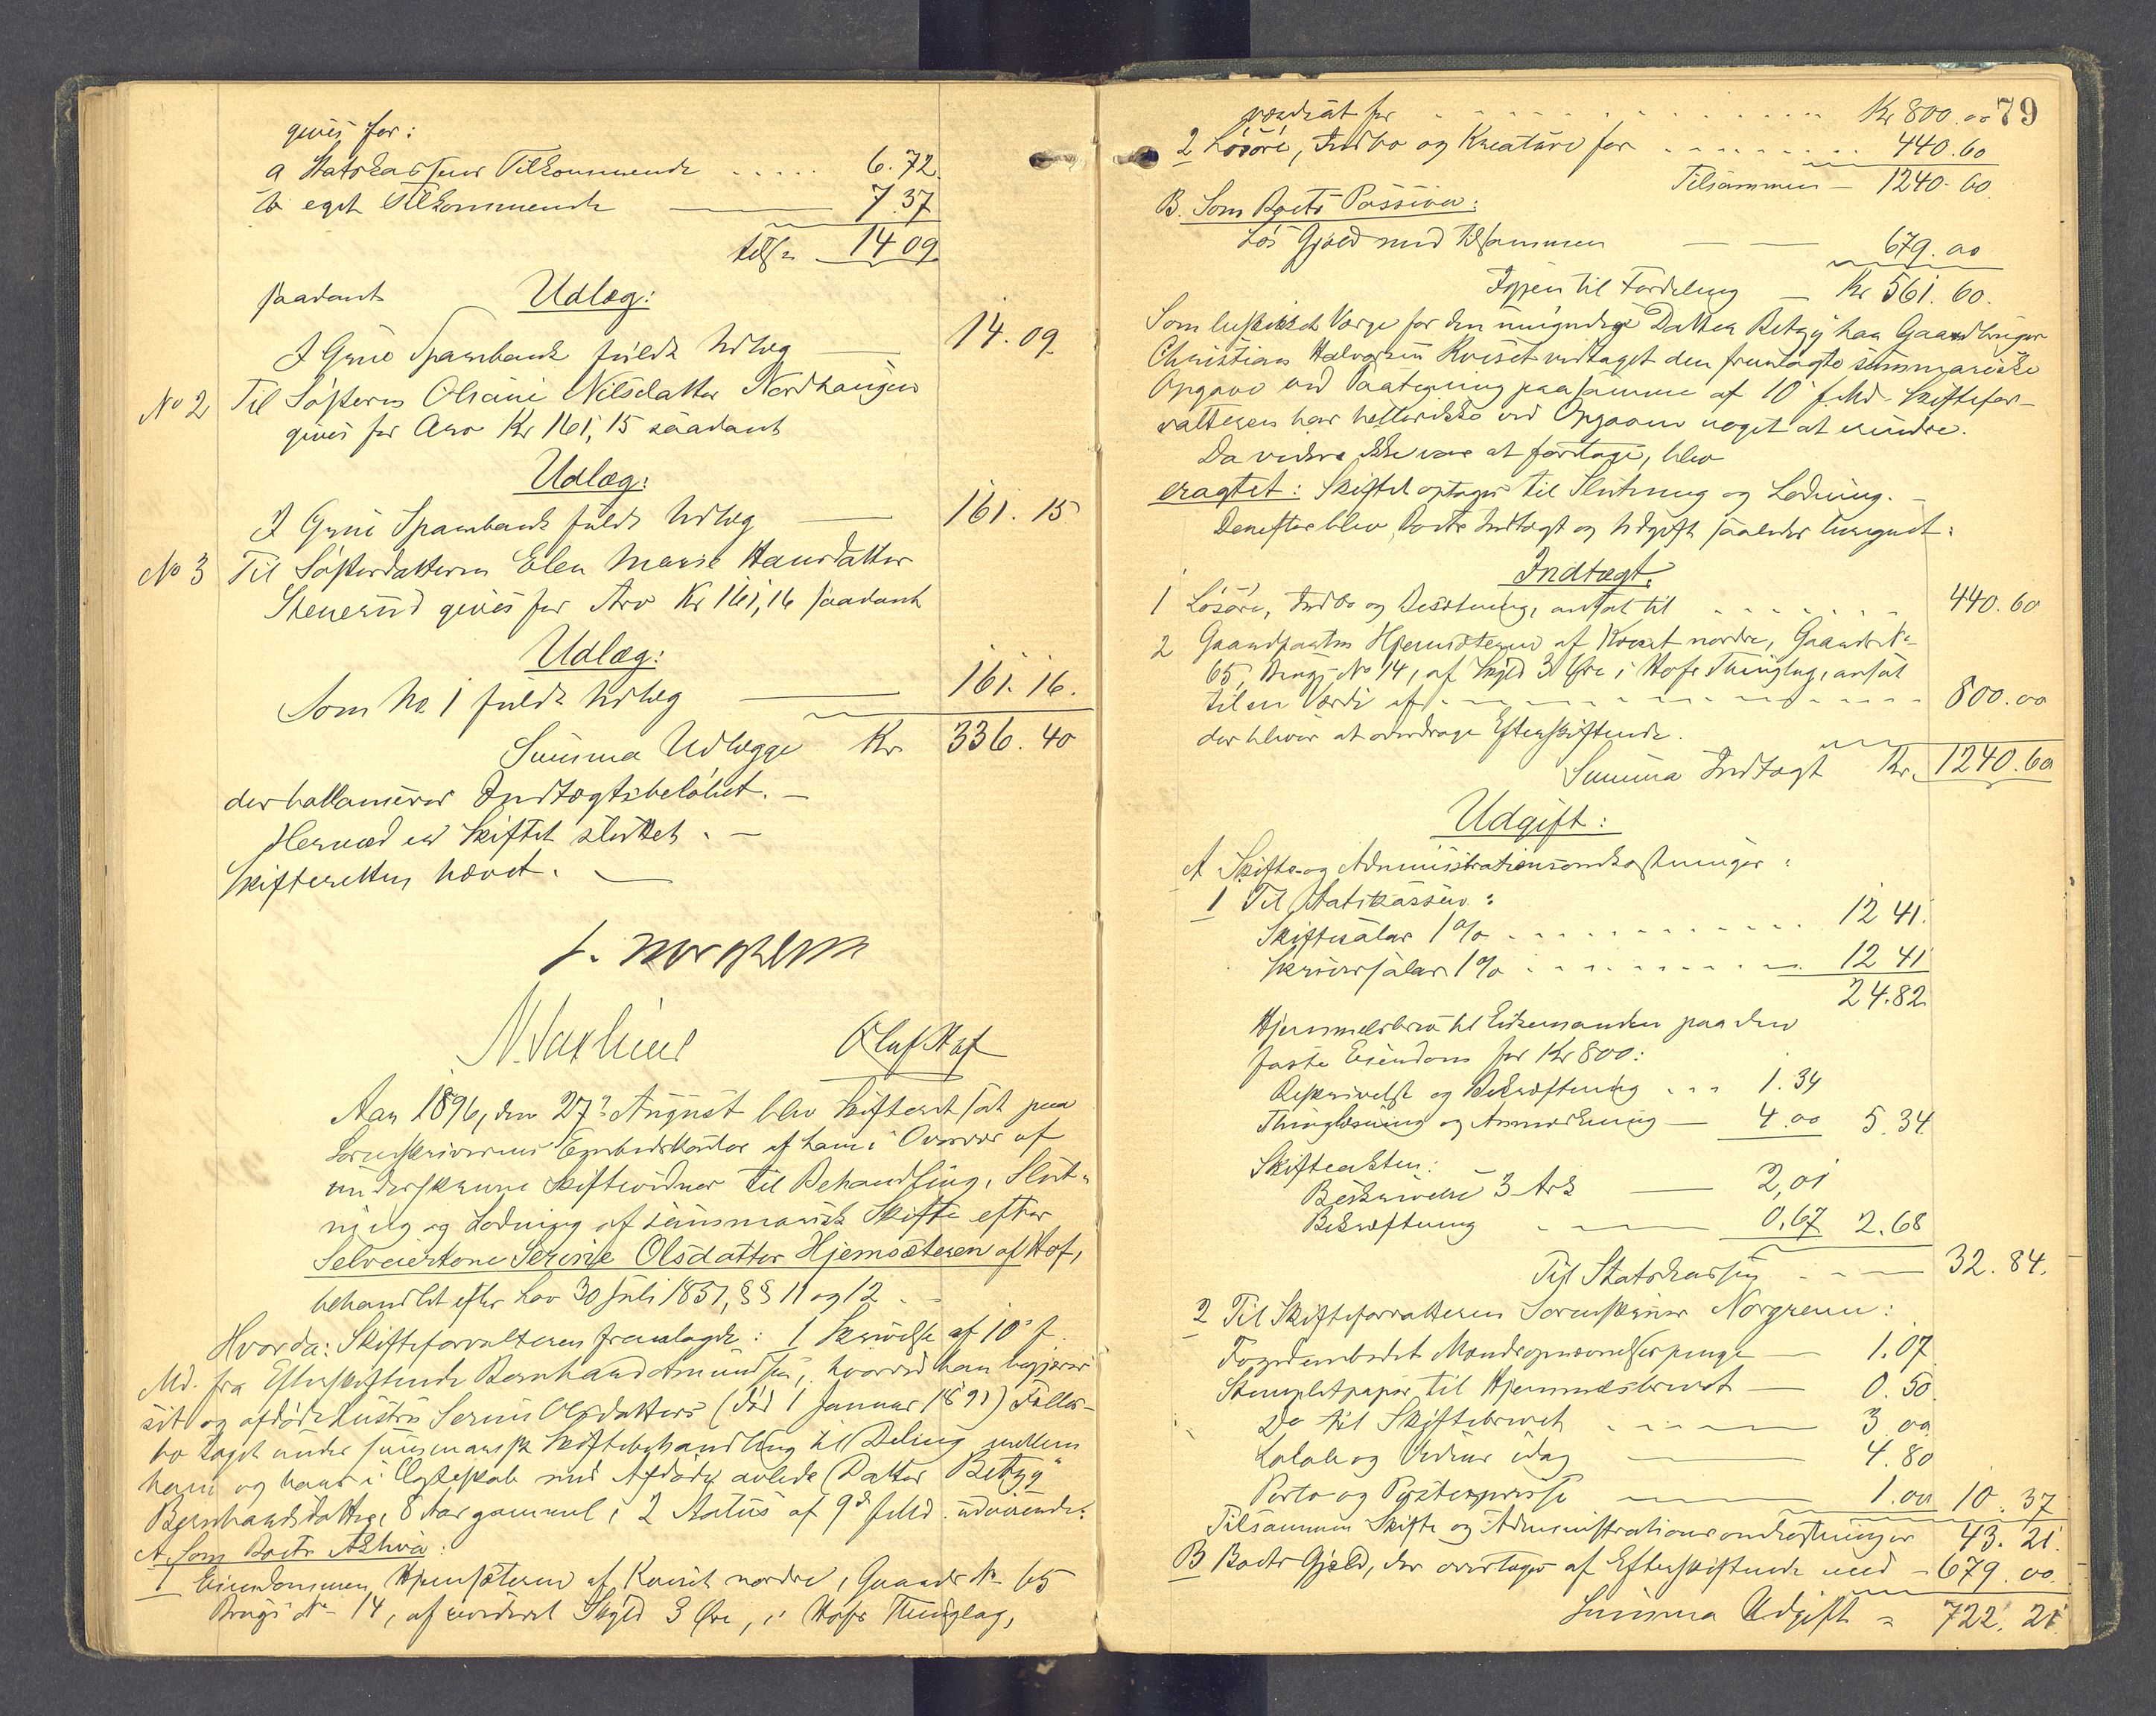 gives for:
a Statskassens Tilkommende ..... 6.72
b eget Tilkommende — 7.37
tils = 14 09
saadant Udlæg:
I Grue Sparebank fuldt Udlæg — 14.09
No 2 Til Søsteren Oleane Nilsdatter Nordhaugen
gives for Arv Kr 161,15 saadant
Udlæg:
I Grue Sparebank fuldt Udlæg — 161.15
No 3 Til Søsterdatteren Elen Marie Hansdatter
Stenerud gives for Arv Kr 161,16 saadant
Udlæg:
Som No 1 fuldt Udlæg — 161.16.
Summa Udlægge Kr 336.40
der ballancerer Indtægtsbeløbet. —
Hermed er Skiftet sluttet. —
Skifteretten hævet. —
Norgrenn
Olaf Hof
Aar 1896, den 27de August blev Skifteret sat paa
Sorenskriverens Embedskontor af ham i Overvær af
underskrevne Skiftevidner til Behandling, Slut-
ning og Lodning af summarisk Skifte efter
Selveierkone Serine Olsdatter Hjemsæteren af Hof,
behandlet efter Lov 30 Juli 1851, §§ 11 og 12. —
Hvorda: Skifteforvalteren fremlagde: 1 Skrivelse af 10de f.
Md. fra Efterskiftende Bernhard Amundsen, hvorved han begjærer
sit og afdøde Hustru Serine Olsdatters (død 1 Januar) Fælles-
bo taget under summarisk Skiftebehandling til Deling mellem
ham og hans i Ægteskab med Afdøde avlede Datter "Betzy"
Bernhardsdatter, 8 Aar gammel, 2 Status af 9de f. Md. udvisende:
A. Som Boets Aktiva:
1 Eiendommen Hjemsæteren af Kveset nordre, Gaards No 65
Brugs No 14, af revideret Skyld 3 Øre, i Hofs Thinglag,
79
værdsat for ..... Kr 800.00
2 Løsøre, Indbo og Kreature for ..... 440.60
Tilsammen — 1240.60
B. Som Boets Passiva:
Løs Gjæld med tilsammen — 679.00
Igjen til Fordeling — Kr 561.60.
Som beskikket Værge for den umyndige Datter Betzy har Gaardbruger
Christian Halvorsen Kveset vedtaget den fremlagte summariske
Opgave ved Paategning paa samme af 10de f. Md. Skiftefor-
valteren har hellerikke ved Opgaven noget at erindre.
Da videre ikke var at foretage, blev
eragtet: Skiftet optages til Slutning og Lodning. —
Derefter blev Boets Indtægt og Udgift saaledes beregnet:
Indtægt.
1 Løsøre, Indbo og Besætning, ansat til ..... 440.60
2 Gaardparten Hjemsæteren af Kveset nordre, Gaards No
65, Brugs No 14, af Skyld 3 Øre i Hofs Thinglag, ansat
til en Værdi af ..... 800.00
der bliver at overdrage Efterskiftende.
Summa Indtægt Kr. 1240.60
Udgift:
A Skifte- og Administrationsomkostninger:
1 Til Statskassen:
Skiftesalær 1% ..... 12 41.
Skriversalær 1% ..... 12 41
24.82
Hjemmelsbrev til Enkemanden paa den
faste Eiendom for Kr 800:
Beskrivelse og Bekræftning ... 1.34
Thinglæsning og Anmærkning — 4.00 5.34
Skifteakten:
Beskrivelse 3 Ark — 2,01
Bekræftning — 0.67 2.68
Til Statskassen — 32.84.
2 Til Skifteforvalteren Sorenskriver Norgrenn:
Fogdembedet Mandsopnævnelsespenge — 1.07
Stempletpapir til Hjemmelsbrevet — 0.50
Do til Skiftebrevet — 3 00
Lokale og Vidner idag — 4.80
Porto og — 1.00 10.37
Tilsammen Skifte og Administrationsomkostninger 43.21.
B Boets Gjæld, der overtages af Efterskiftende med — 679.00
Summa Udgift = 722.21.